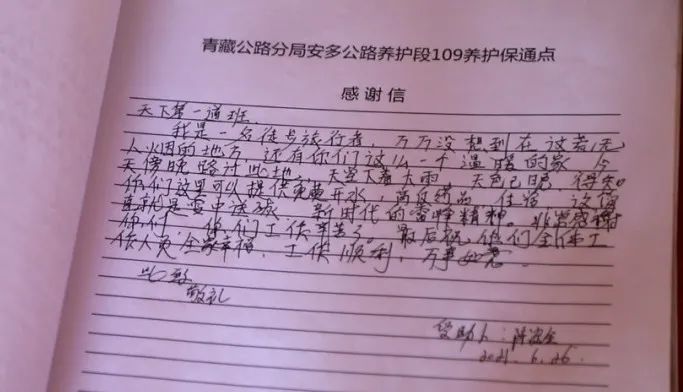 青藏公路分局安多公路养护段109养护保通点
感谢信
天下第一道班.
我是一名徒步旅行者,万万没想到在这若无
人烟的地方,还有你们这么一个温暖的家 今
天傍晚路过此地,天空下着大雨 天色已晚 得知
你们这里可以提供免费开水,高反药品 住宿 这简
直就是雪中送碳. 新时代的雷峰精神. 非常感谢
你们, 你们工作辛苦了。最后祝他们全体工
作人员 全家幸福, 工作顺利, 万事如意.
此致
敬礼
受助人:
2021.6.26.